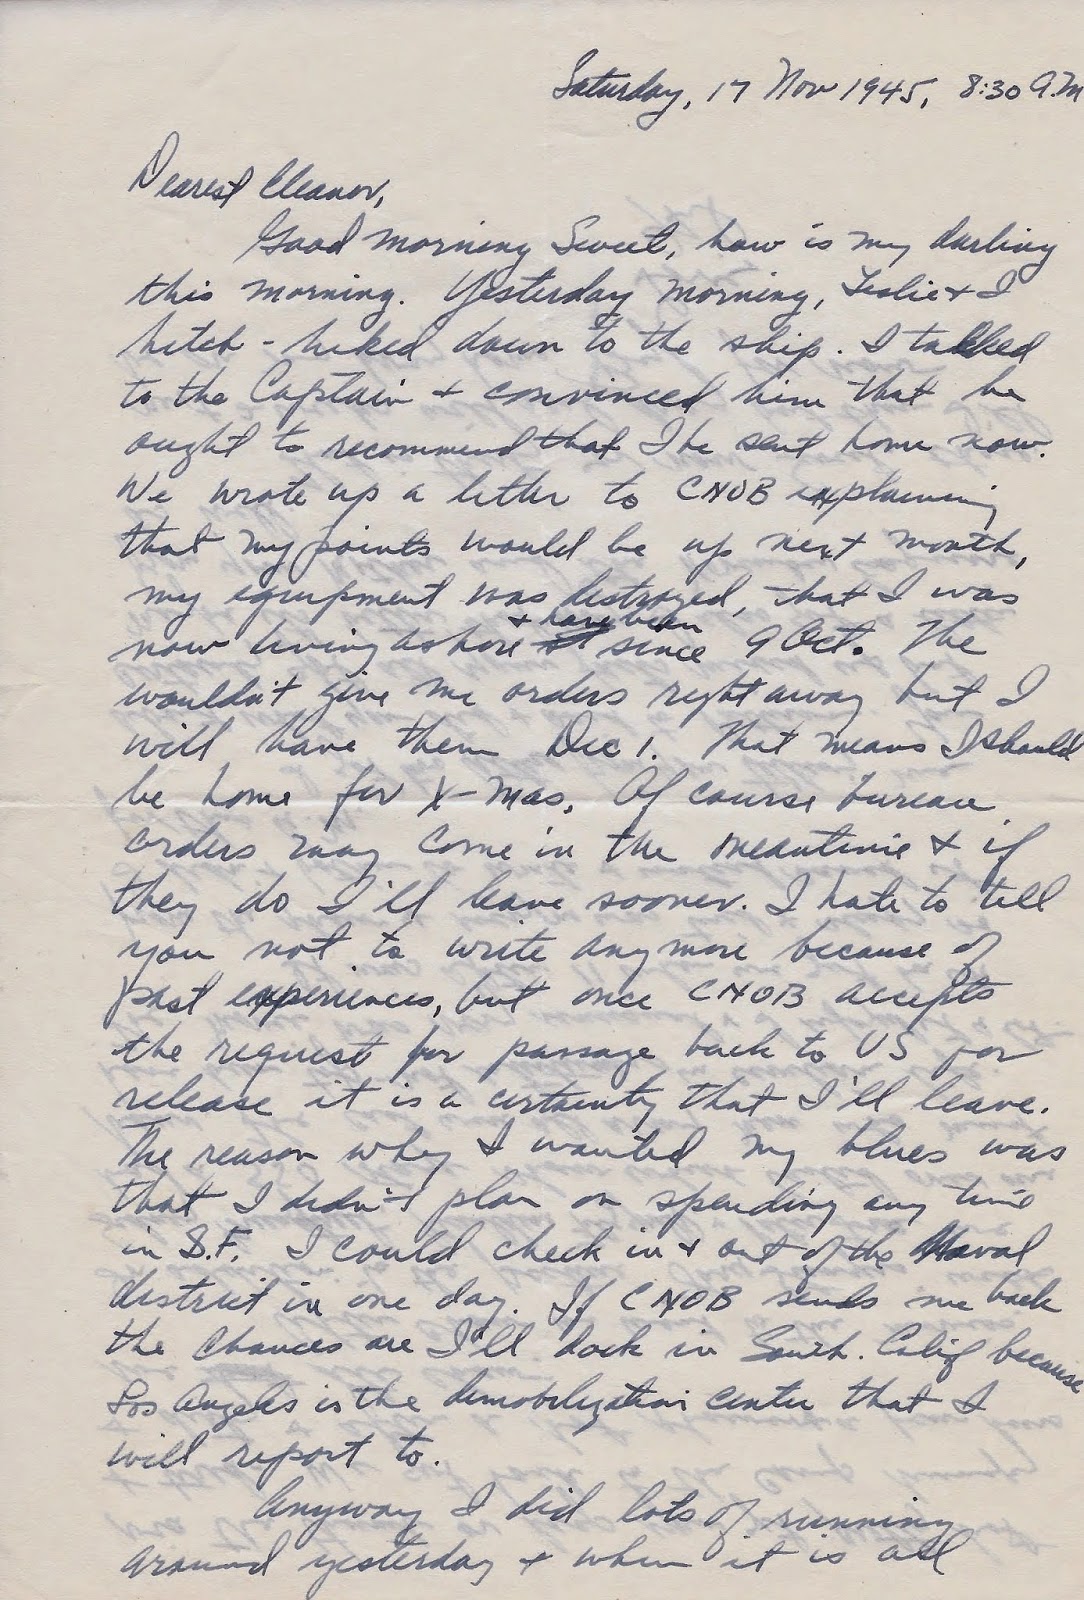 Saturday, 17 Nov 1945, 8:30 A.M
Dearest Eleanor,
Good morning Sweet, how is my darling
this morning. Yesterday morning, Leslie & I
hitch-hiked down to the ship. I talked
to the Captain & convinced him that he
ought to recommend that I be sent home now.
We wrote up a letter to CNOB explaining
that my points would be up next month,
my equipment was destroyed, that I was
now living ashore & have been since 9 Oct. The
wouldn't give me orders right away but I
will have them Dec 1. That means I should
be home for X-mas. Of course bureau
orders may come in the meantime & if
they do I'll leave sooner. I hate to tell
you not to write anymore because of
past experiences, but once CNOB accepts
the request for passage back to US for
release it is a certainty that I'll leave.
The reason why I wanted my blues was
that I didn't plan on spending any time
in S.F. I could check in & out of the Naval
district in one day. If CNOB sends me back
the chances are I'll dock in South. Calif because
Los Angeles is the demobilization center that I
will report to.
Anyway I did lots of running
around yesterday & when it is all